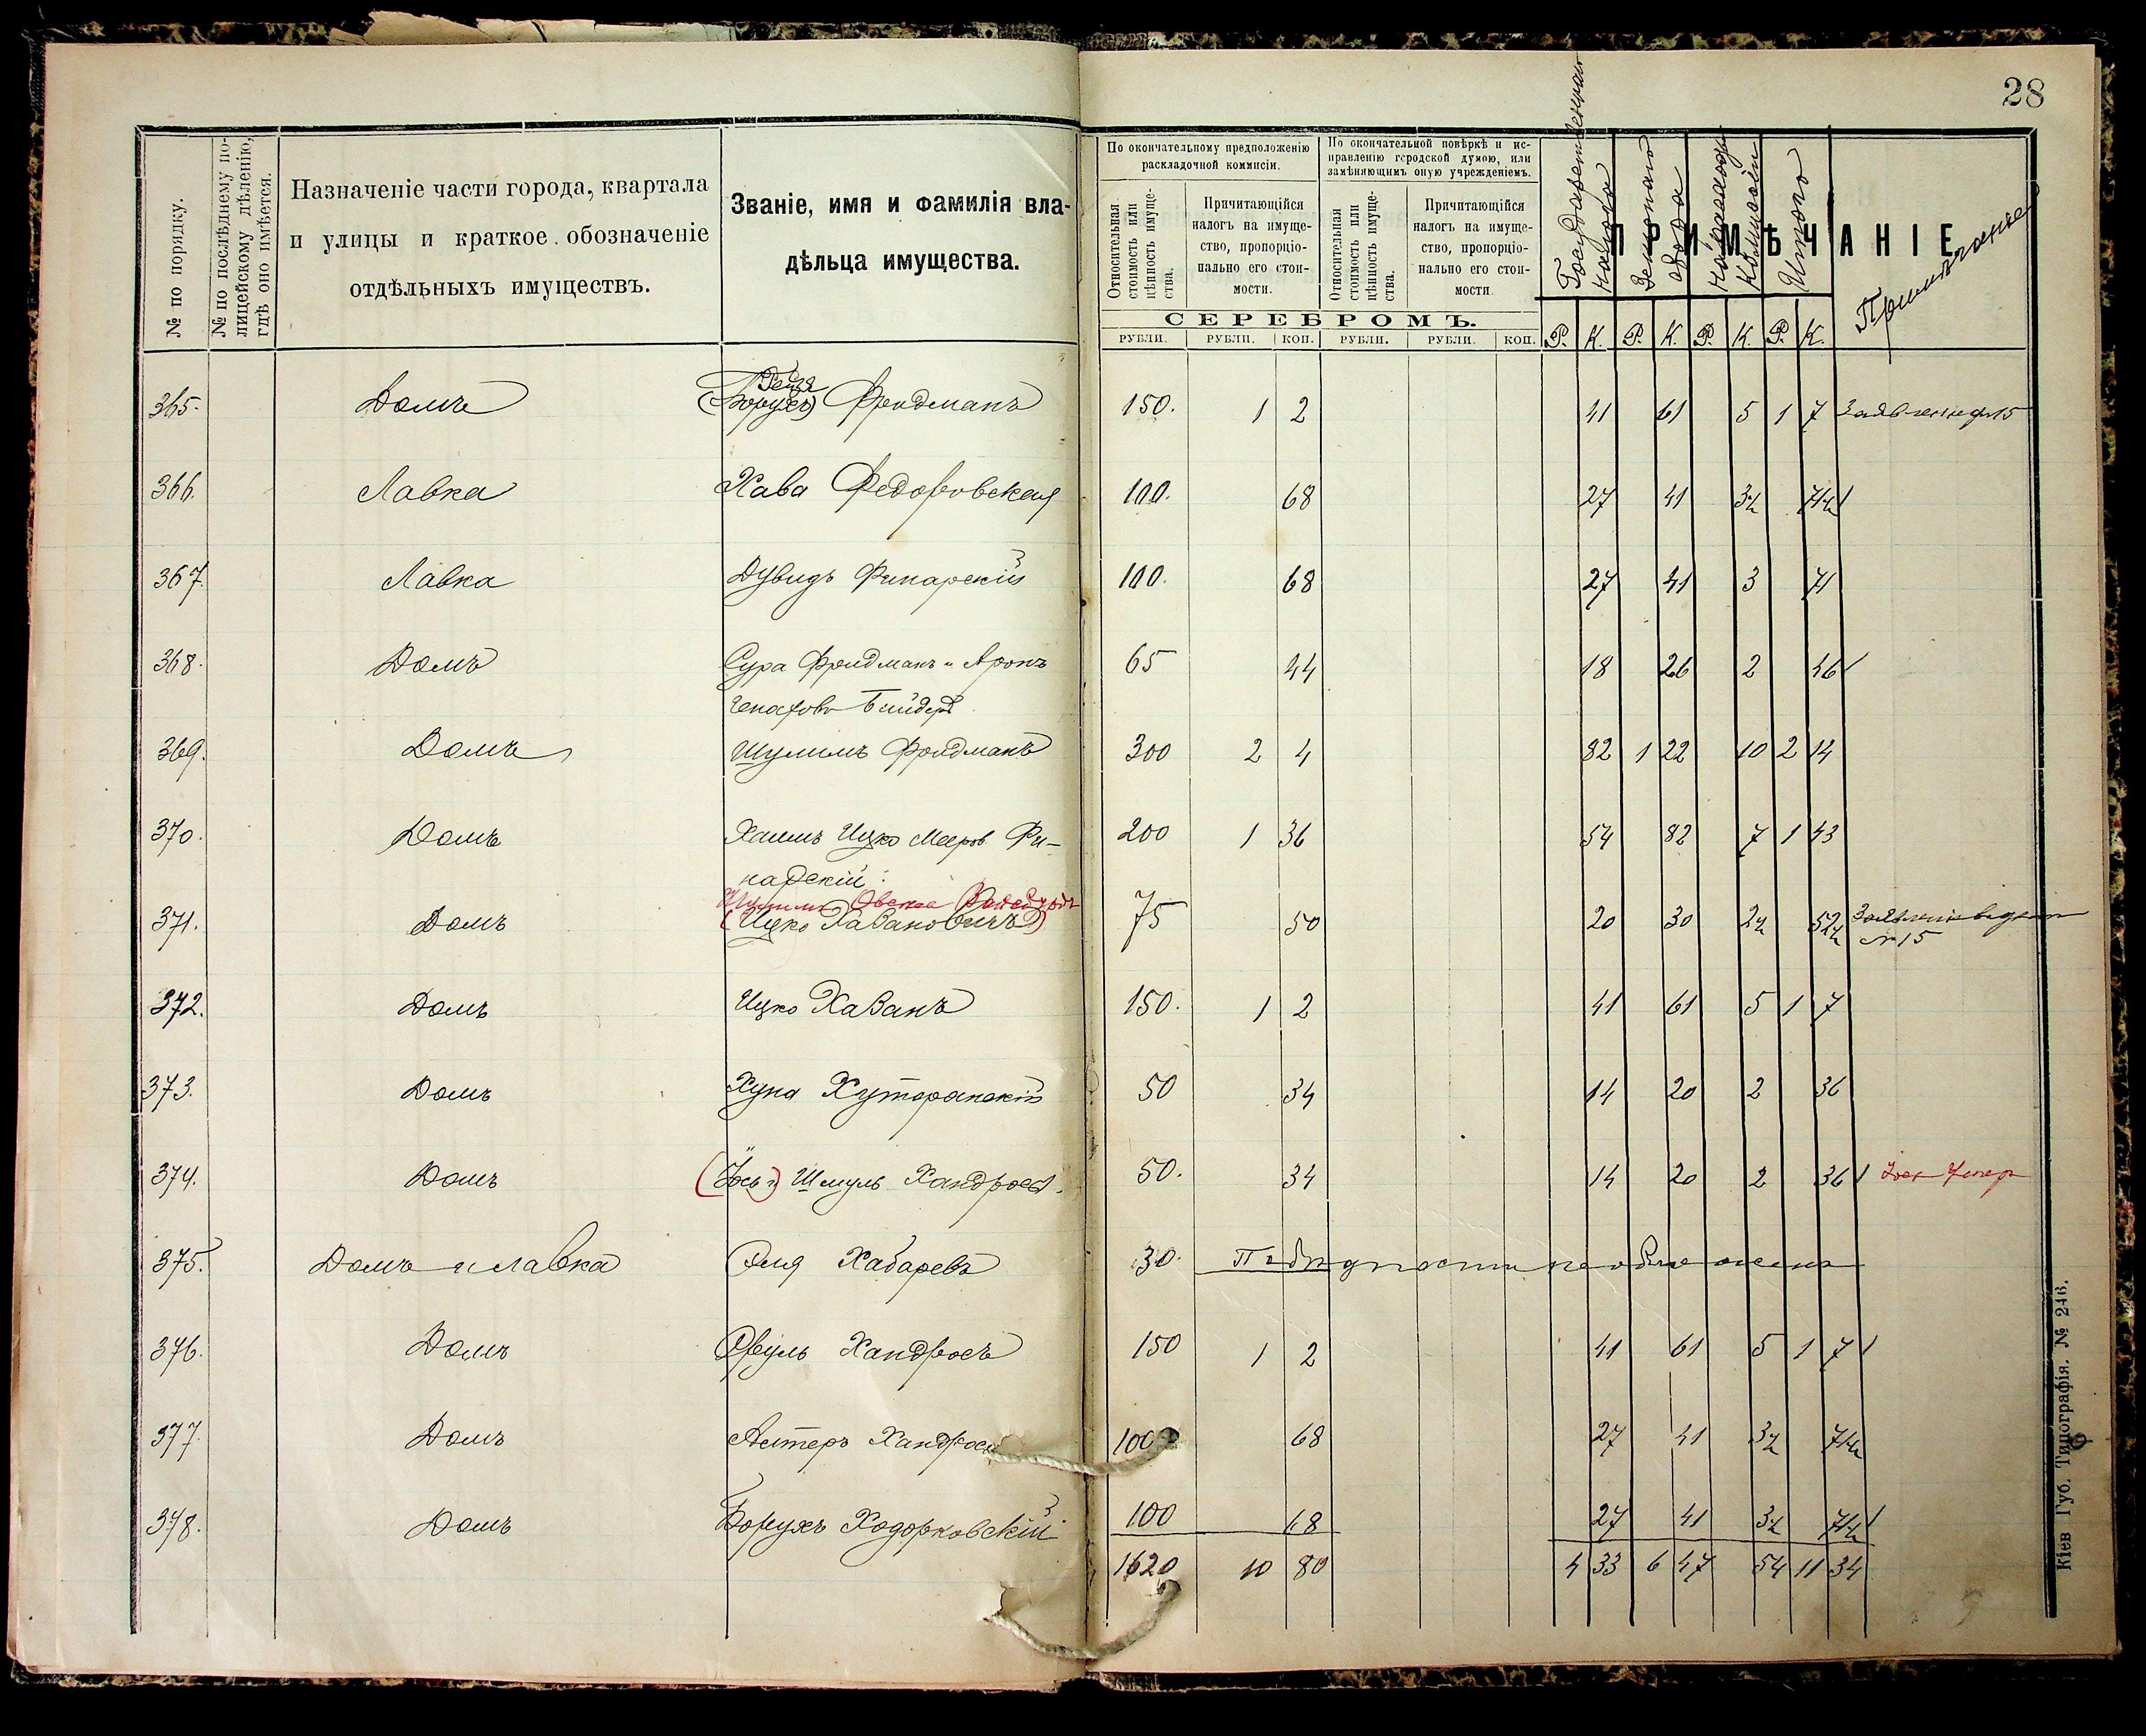 28
№ по порядку.
№ по послѣднему по-
лицейскому дѣленію,
гдѣ оно имѣется.
Назначеніе части города, квартала
и улицы и краткое обозначеніе
отдѣльныхъ имуществъ.
Званіе, имя и фамилія вла-
дѣльца имущества.
По окончательному предположенію
раскладочной коммисіи.
По окончательной повѣркѣ и ис-
правленію городской думою, или
замѣняющимъ оную учрежденіемъ.
Относительная
стоимость или
цѣнность имуще-
ства.
Причитающійся
налогъ на имуще-
ство, пропорціо-
нально его стои-
мости.
Относительная
стоимость или
цѣнность имуще-
ства.
Причитающійся
налогъ на имуще-
ство, пропорціо-
нально его стои-
мости
ПРИМѢЧАНІЕ
Итого
Примѣчаніе
СЕРЕБРОМЪ.
РУБЛИ. РУБЛИ. КОП. РУБЛИ. РУБЛИ. КОП. Р. К. Р. К. Р. К. Р. К.
365. Домъ (Борухъ) Фридманъ 150. 1 2 41 61 5 1 7
366. Лавка Хава Федоровская 100. 68 27 41 3½ 71½
367. Лавка Дувидъ Финарскій 100. 68 27 41 3 71
368. Домъ Сура Фридманъ и Аронъ 65 44 18 26 2 46
369. Домъ Шулимъ Фридманъ 300 2 4 82 1 22 10 2 14
370. Домъ Хаимъ Ицко Мееров Фи- 200 1 36 54 82 7 1 43
нарскій
371. Домъ (Ицко Хазановичъ) 75 50 20 30 2½ 52½
№ 15
372. Домъ Ицко Хазанъ 150. 1 2 41 61 5 1 7
373. Домъ Хуна Хуторанскій 50 34 14 20 2 36
374. Домъ (Іось и) Шмуль Хандросъ. 50. 34 14 20 2 36
375. Домъ и лавка Эля Хабаревъ 30. По бѣдности не обложенъ
376. Домъ Сруль Хандросъ 150 1 2 41 61 5 1 7
377. Домъ Алтеръ Хандросъ 100 68 27 41 3½ 71½
378. Домъ Борухъ Ходорковскій 100 68 27 41 3½ 71½
1620 10 80 4 33 6 47 54 11 34
Кіев Губ. Типографія. № 246.